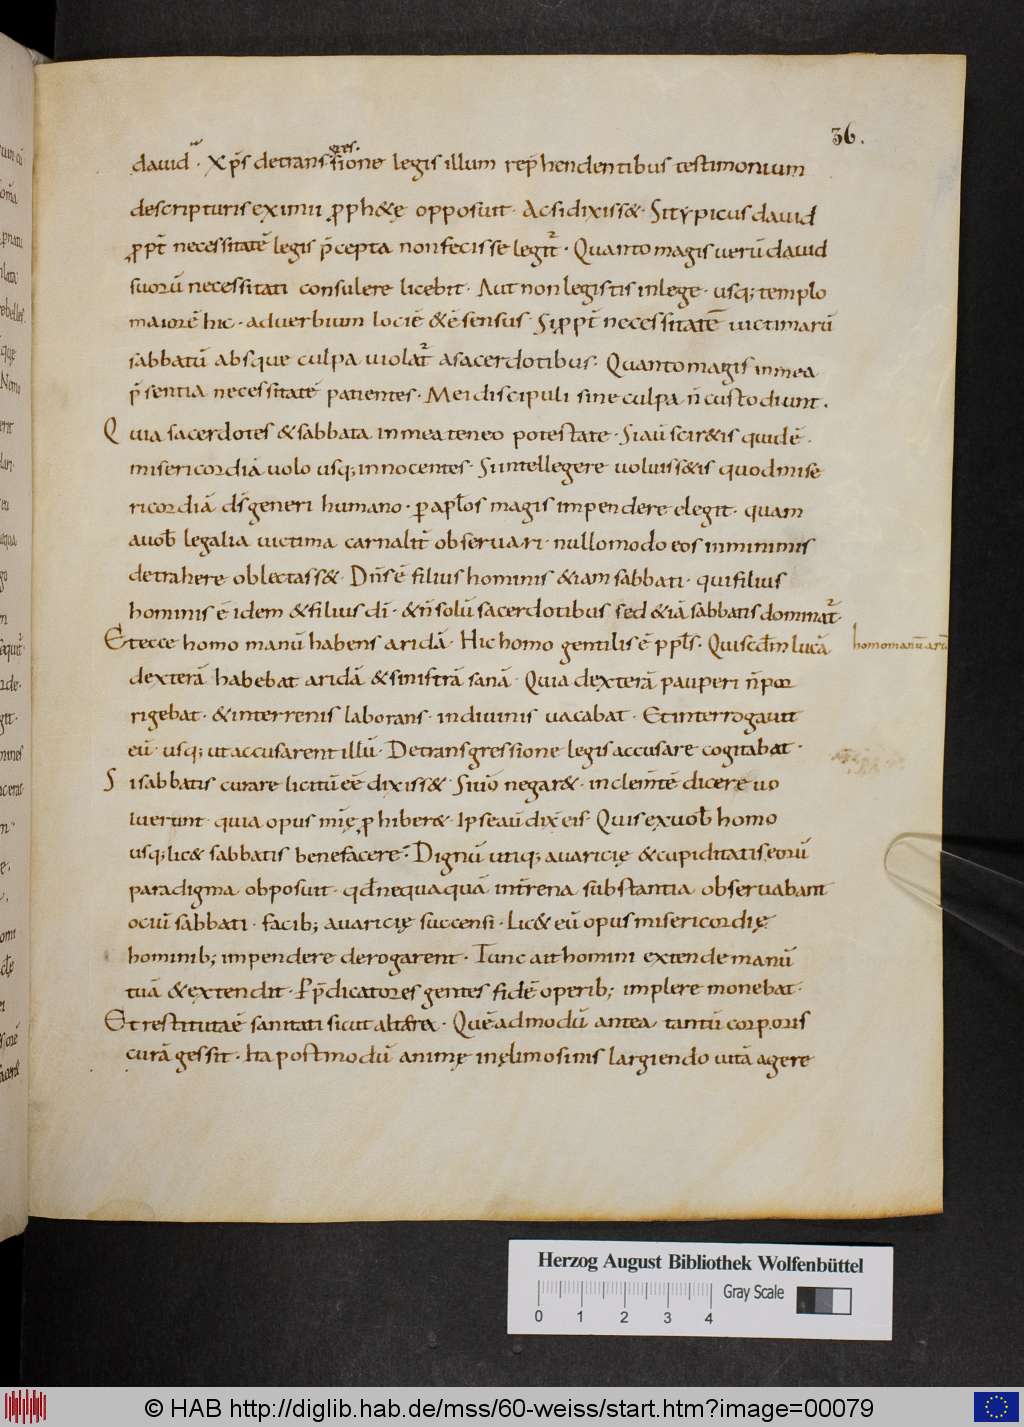 36.
dauid · Xp̄s detrans gres. sione legis illum rep̄hendentibus testimonium
descripturis eximii ꝓph&ę opposuit · Acsi dixiss& · Si typicus dauid
ꝓpt̄ necessitatē legis p̄cepta non fecisse legit᷑ · Quanto magis uerū dauid
suorū necessitati consulere licebit · Aut non legistis in lege · usq; templo
maiorē hic · aduerbium loci ē & ē sensus · Si ꝓpt̄ necessitatē uictimarū
sabbatū absque culpa uiolat᷑ a sacerdotibus · Quanto magis in mea
p̄sentia necessitatē patientes · Mei discipuli sine culpa n̄ custodiunt .
Quia sacerdotes & sabbata in mea teneo potestate · Si aū scir&is quid ē ·
misericordiā uolo usq; innocentes · Si intellegere uoluiss&is quod mise
ricordiā d̄s generi humano · ꝑ apl̄os magis impendere elegit · quam
a uob̄ legalia uictima carnalit̄ obseruari · nullomodo eos in minimis
detrahere oblectass& · Dn̄s ē filius hominis &iam sabbati · qui filius
hominis ē idem & filius dī · & n̄ solū sacerdotibus sed &iā sabbatis dominat᷑ ·
Et ecce homo manū habens aridā · Hic homo gentilis ē ppl̄s · Qui scd̄m lucā
homo manū arid
dexterā habebat aridā & sinistrā sanā · Quia dexterā pauperi n̄ por
rigebat · & in terrenis laborans · in diuinis uacabat · Et interrogauit
eū · usq; ut accusarent illū · De transgressione legis accusare cogitabat ·
Si sabbatis curare licitū eē dixiss& · Si uō negar& · inclem̄tē dicere uo
luerunt · quia opus mīę ꝓhiber& · Ipse aū dix̄ eis · Quis ex uob̄ homo
usq; lic& sabbatis benefacere · Dignū utiq; auaricię & cupiditatis eorū
paradigma obposuit · qd̄ nequaquā int̄rena substantia obseruabant
ociū sabbati · facib; auaricię succensi · Lic& eū opus misericordię
hominib; impendere derogarent · Tunc ait homini extende manū
tuā & extendit · Ꝑ p̄dicatores gentes fidē operib; implere monebat ·
Et restituta ē sanitati sicut alt̄area · Quē admodū antea tantū corporis
curā gessit · Ita postmodū animę in ęlimosinis largiendo uitā agere
Herzog August Bibliothek Wolfenbüttel
Gray Scale
0 1 2 3 4
© HAB http://diglib.hab.de/mss/60-weiss/start.htm?image=00079